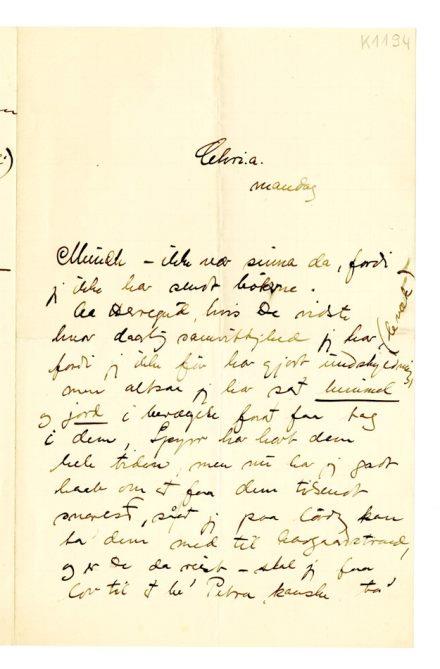 K1194
Chri.a.
mandag
Munch – ikke vær sinna da, fordi
jeg ikke har sendt bøkerne.
Aa Herregud, hvis De vidste
hvor daarlig samvittighed jeg har,
fordi jeg ikke før har gjort undskyldning
men altsaa jeg har sat himmel
og jord i bevægelse forat faa tag
i dem, har hat dem
hele tiden, men nu har jeg godt
haab om at faa dem tilsendt
snarest, saa jeg paa Lørdag kan
ta' dem med til Aasgaardstrand,
og er De da reist – skal jeg faa
Lov til at be' Petra kanske ta'